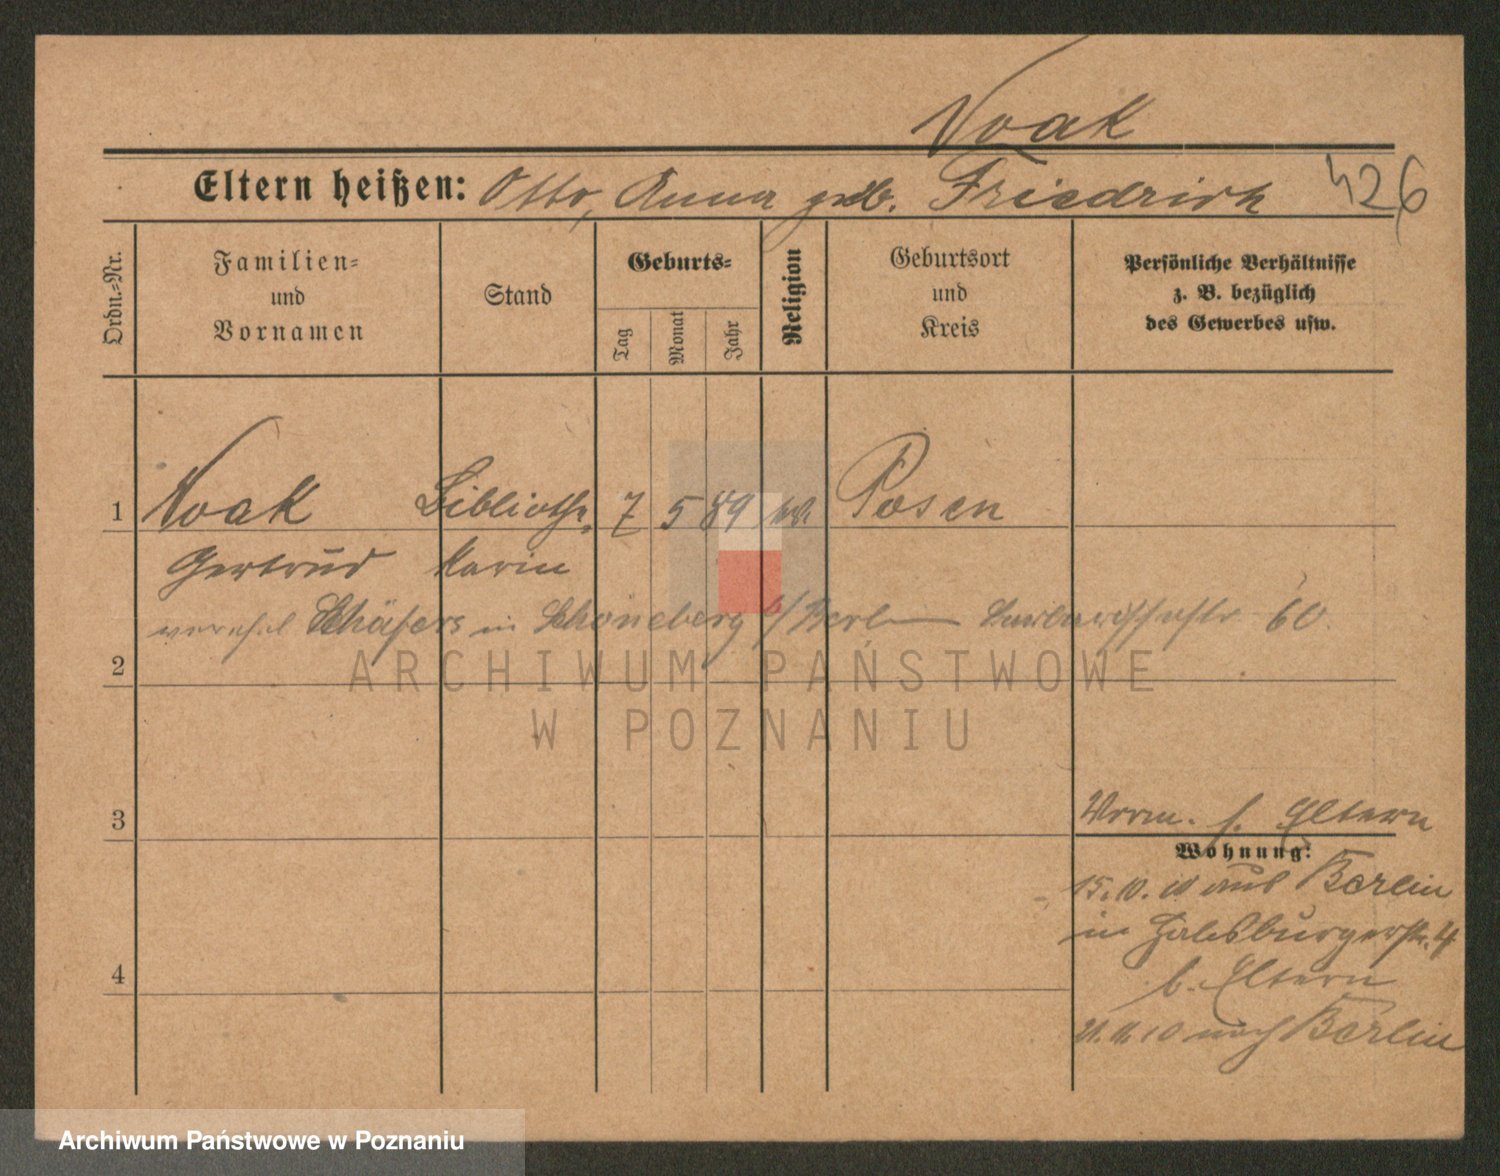 Noak
Eltern heißen: Otto, Anna geb. Friedrich 426
Ordn.-Nr.
Familien-
und
Vornamen
Stand
Geburts-
Tag
Monat
Jahr
Religion
Geburtsort
und
Kreis
Persönliche Verhältnisse
z. B. bezüglich
des Gewerbes usw.
1 Noak Bibliothe- 7 5 89 Posen
Gertrud karin
verehel Schäfers in Schöneberg b/ Berlin 60.
2
ARCHIWUM PAŃSTWOWE
W POZNANIU
3
Vorm. s. Eltern
Wohnung:
15.10.10 aus Berlin
in 4
4
b. Eltern
21.11.10 nach Berlin
Archiwum Państwowe w Poznaniu